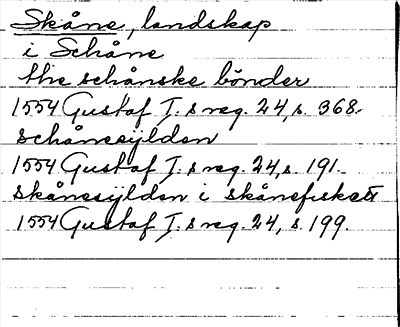 Skåne, landskap
i Schåne
the schånske bönder
1554 Gustaf I.s reg. 24, s. 368.
schånesijlden
1554 Gustaf I.s reg. 24, s. 191.
skånesijlden i skånefisket
1554 Gustaf I.s reg. 24, s. 199.